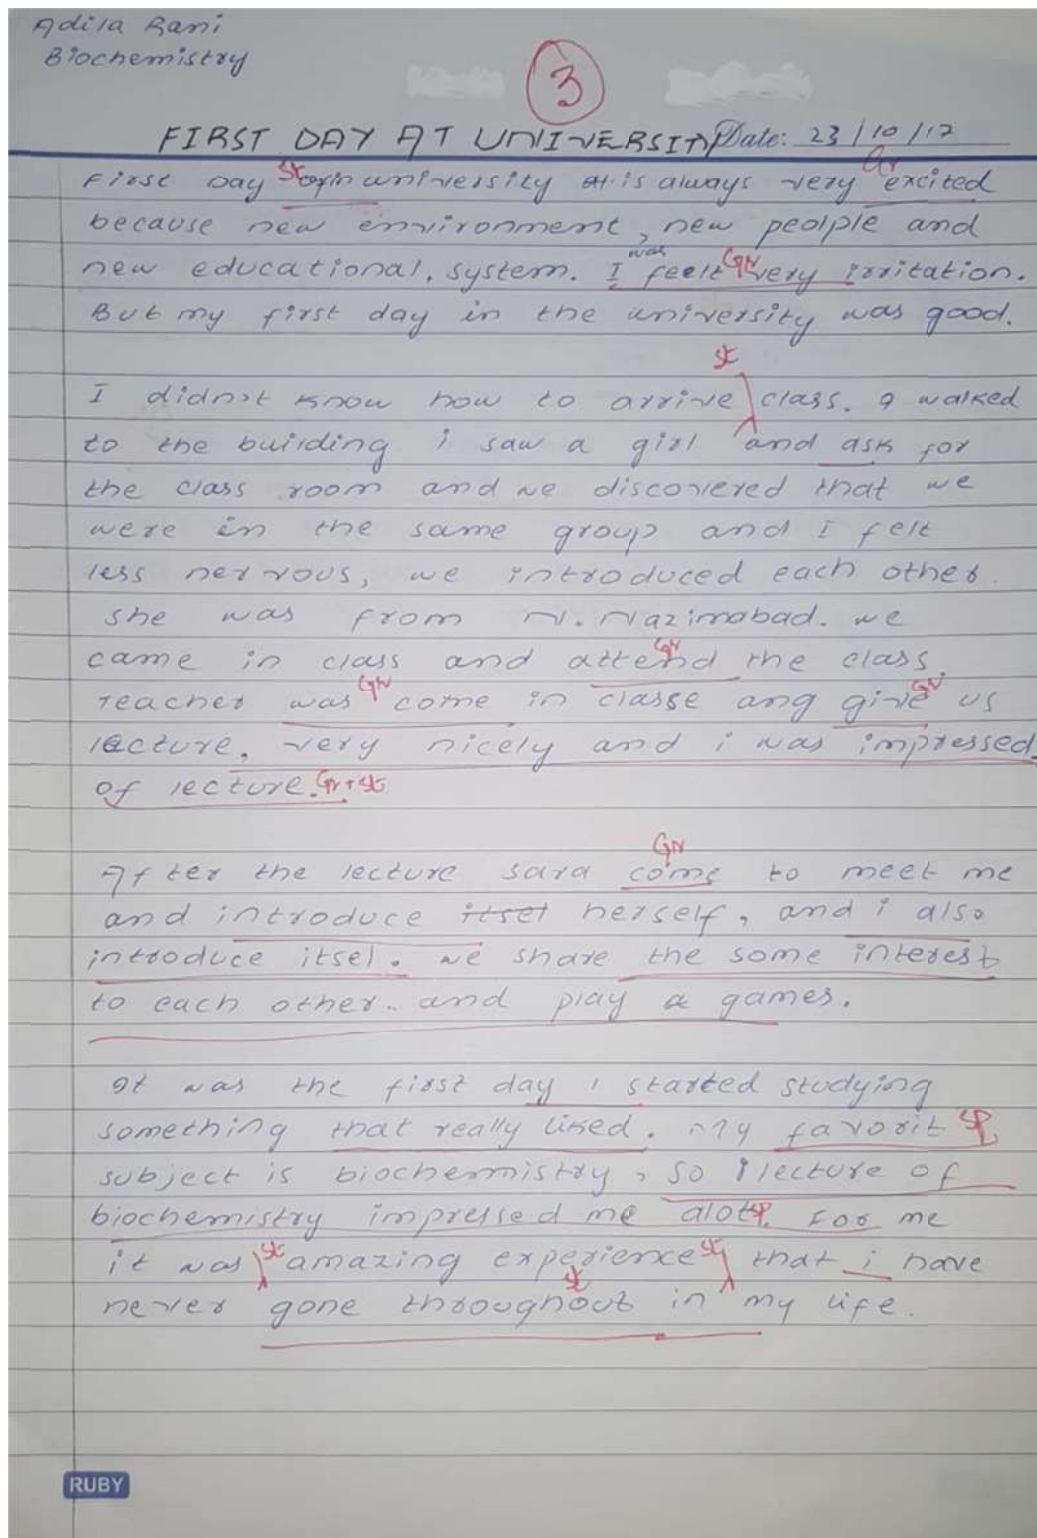 Adila Rani
Biochemistry
3
FIRST DAY AT UNIVERSITY Date: 23/10/17
Gr
St
First Day in university is always very excited
because new environment, new peolple and
was Gr
new educational, system. I feelt very irritation.
But my first day in the university was good.
st
I didn't know how to arrive class. I walked
to the building i saw a girl and ask for
the class room and we discovered that we
were in the same group and I felt
less nervous, we introduced each other.
she was from N. Nazimabad. we
Gr
came in class and attend the class.
Gr Gr
Teacher was come in classe ang give us
lecture. very nicely and i was impressed.
of lecture. Gr+st
Gr
After the lecture sara come to meet me
and introduce itsel herself, and i also
introduce itsel. we share the some interest
to each other. and play a games.
It was the first day i started studying
something that really liked. my favorit sp
subject is biochemistry, so i lecture of
biochemistry impressed me alot sp. For me
it was st amazing experience st that i have
st
never gone throughout in my life.
RUBY